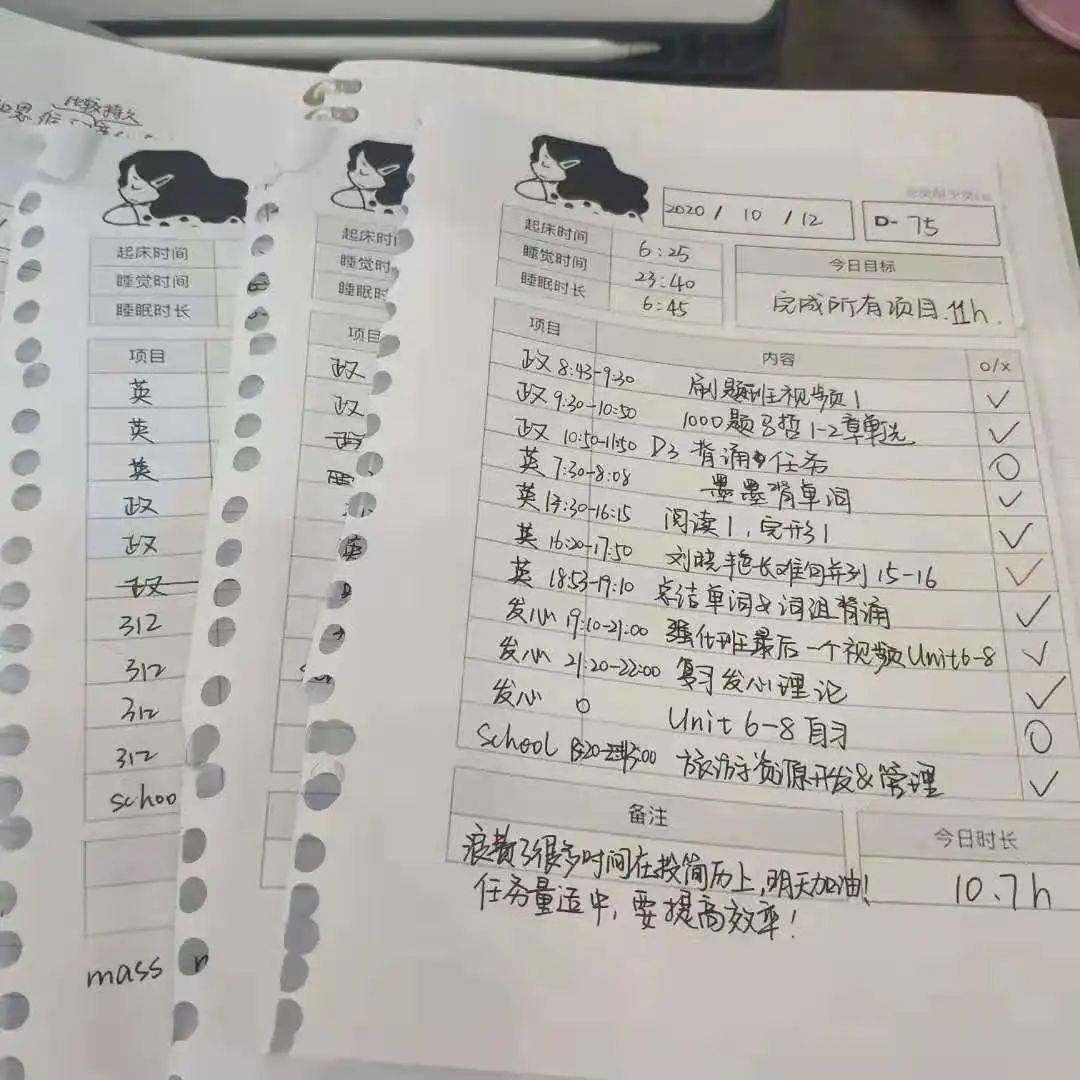 比较持久
起床时间
睡觉时间
睡眠时长
项目
英
英
英
政
政
政
312
312
312
312
schoo
mass
起床时间
睡觉时
睡眠时
项目
政
政
政
英
2020 / 10 / 12
D- 75
起床时间 6:25
睡觉时间 23:40
睡眠时长 6:45
今日目标
完成所有项目.11h.
项目 内容 o/x
政 8:43-9:30 刷题班视频1 ✓
政 9:30-10:50 1000题马哲1-2章单选 ✓
政 10:50-11:50 D3 背诵任务 O
英 7:30-8:08 墨墨背单词 ✓
英 17:30-16:15 阅读1,完形1 ✓
英 16:20-17:50 刘晓艳长难句并列15-16 ✓
英 18:53-19:10 总结单词&词组背诵 ✓
发心 19:10-21:00 强化班最后一个视频Unit6-8 ✓
发心 21:20-22:00 复习发心理论 ✓
发心 0 Unit 6-8自习 O
School 旅游资源开发&管理 ✓
备注
浪费了很多时间在投简历上,明天加油!
任务量适中,要提高效率!
今日时长
10.7h